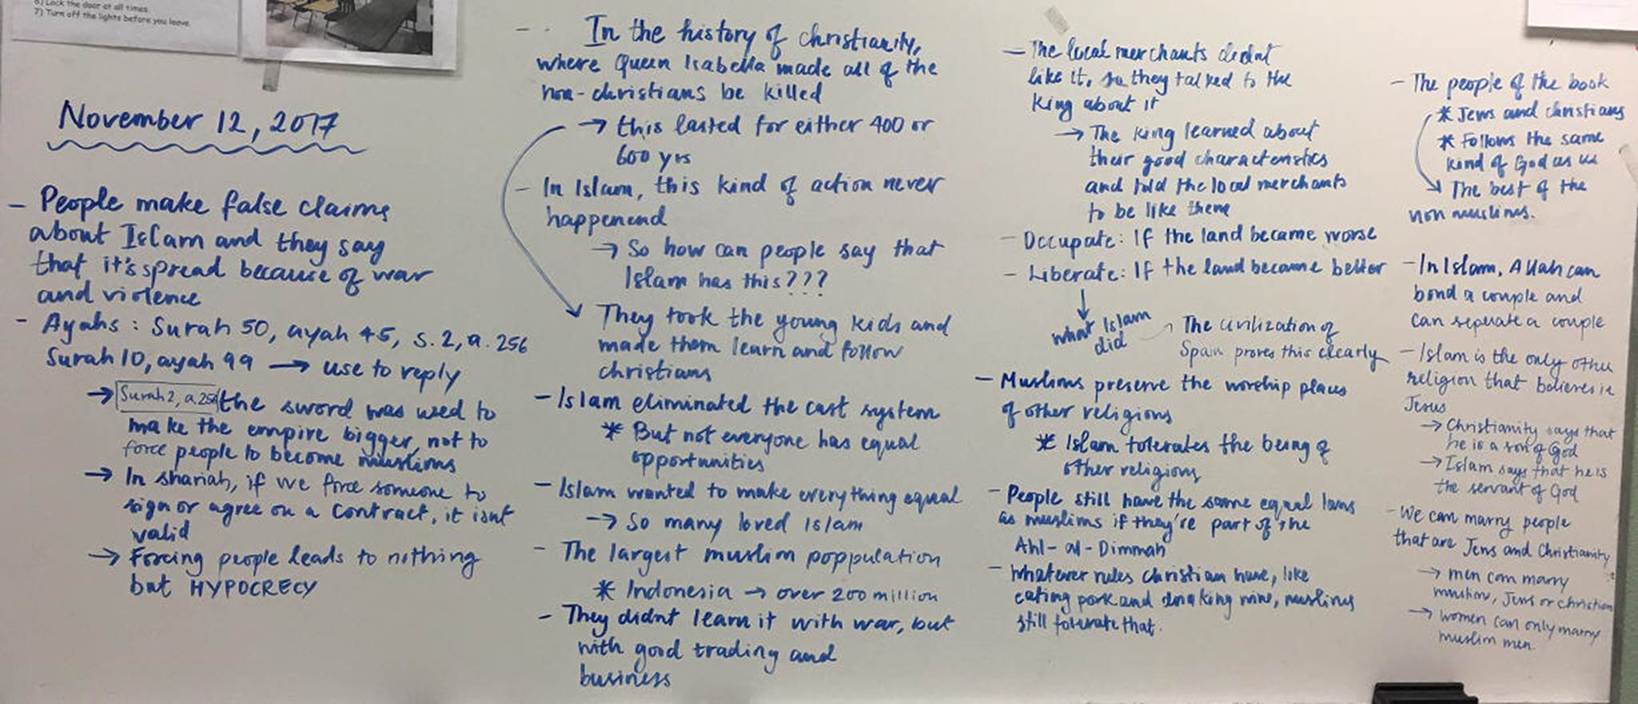 6) Lock the door at all times.
7) Turn off the lights before you leave.
November 12, 2017
- People make false claims
about Islam and they say
that it's spread because of war
and violence
- Ayahs : Surah 50, ayah 45, s. 2, a. 256
Surah 10, ayah 99 → use to reply
→ Surah 2, a 256 the sword was used to
make the empire bigger, not to
force people to become muslims
→ In shariah, if we force someone to
sign or agree on a contract, it isnt
valid
→ Forcing people leads to nothing
but HYPOCRECY
- In the history of christianity,
where Queen Isabella made all of the
non-christians be killed
→ this lasted for either 400 or
600 yrs
- In Islam, this kind of action never
happenend
→ So how can people say that
Islam has this???
They took the young kids and
made them learn and follow
christians
- Islam eliminated the cast system
* But not everyone has equal
opportunities
- Islam wanted to make everything equal
→ So many loved Islam
- The largest muslim poppulation
* Indonesia → over 200 million
- They didnt learn it with war, but
with good trading and
business
- The local merchants didnt
like it, so they talked to the
King about it
→ The king learned about
their good characteristics
and told the local merchants
to be like them
- Occupate: If the land became worse
- Liberate: If the land became better
what Islam
did
The civilization of
Spain proves this clearly
- Muslims preserve the worship places
of other religions
* Islam tolerates the being of
other religions
- People still have the same equal laws
as muslims if they're part of the
Ahl-al-Dimmah
- Whatever rules christian have, like
eating pork and drinking wine, muslims
still tolerate that.
- The people of the book
* Jews and christians
* Follows the same
kind of God as us
The best of the
non muslims.
- In Islam, Allah can
bond a couple and
can seperate a couple
- Islam is the only other
religion that believes in
Jesus
→ Christianity says that
he is a son of God
→ Islam says that he is
the servant of God
- We can marry people
that are Jews and Christianity
→ men can marry
muslim, Jews or christian
→ women can only marry
muslim men